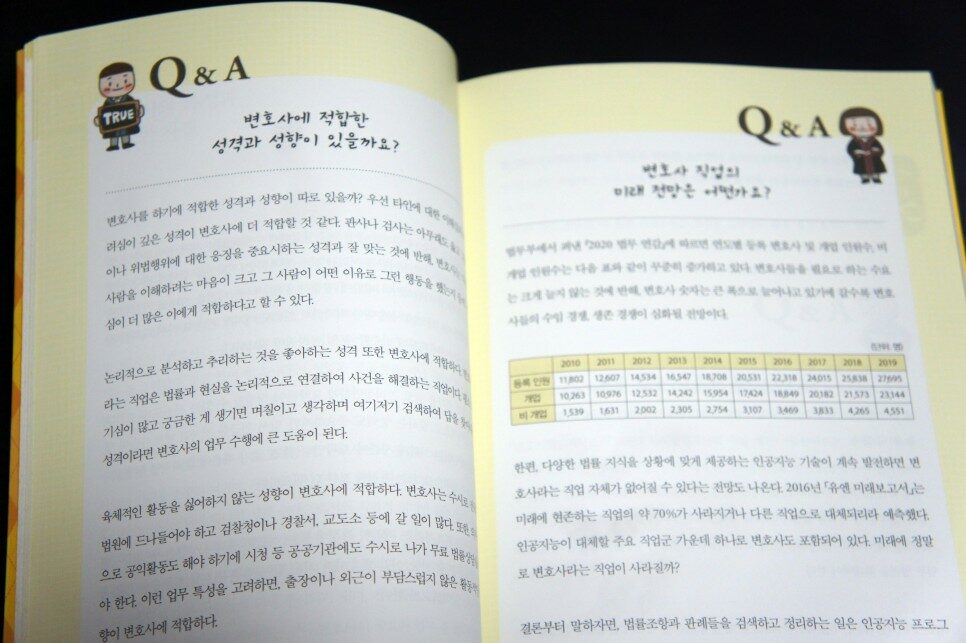 Q & A
TRUE
변호사에 적합한
성격과 성향이 있을까요?
변호사를 하기에 적합한 성격과 성향이 따로 있을까? 우선 타인에 대한
려심이 깊은 성격이 변호사에 더 적합할 것 같다. 판사나 검사는 아무래도
이나 위법행위에 대한 응징을 중요시하는 성격과 잘 맞는 것에 반해, 변호사는
사람을 이해하려는 마음이 크고 그 사람이 어떤 이유로 그런 행동을 했는지
심이 더 많은 이에게 적합하다고 할 수 있다.
논리적으로 분석하고 추리하는 것을 좋아하는 성격 또한 변호사에 적합하다.
라는 직업은 법률과 현실을 논리적으로 연결하여 사건을 해결하는 직업이다.
기심이 많고 궁금한 게 생기면 며칠이고 생각하며 여기저기 검색하여 답을
성격이라면 변호사의 업무 수행에 큰 도움이 된다.
육체적인 활동을 싫어하지 않는 성향이 변호사에 적합하다. 변호사는 수시로
법원에 드나들어야 하고 검찰청이나 경찰서, 교도소 등에 갈 일이 많다. 또한
으로 공익활동도 해야 하기에 시청 등 공공기관에도 수시로 나가 무료 법률상담
야 한다. 이런 업무 특성을 고려하면, 출장이나 외근이 부담스럽지 않은 활동적
향이 변호사에 적합하다.
Q & A
변호사 직업의
미래 전망은 어떤가요?
법무부에서 펴낸 『2020 법무 연감』에 따르면 연도별 등록 변호사 및 개업 인원수, 비
개업 인원수는 다음 표와 같이 꾸준히 증가하고 있다. 변호사들을 필요로 하는 수요
는 크게 늘지 않는 것에 반해, 변호사 숫자는 큰 폭으로 늘어나고 있기에 갈수록 변호
사들의 수임 경쟁, 생존 경쟁이 심화될 전망이다.
(단위: 명)
2010 2011 2012 2013 2014 2015 2016 2017 2018 2019
등록 인원 11,802 12,607 14,534 16,547 18,708 20,531 22,318 24,015 25,838 27,695
개업 10,263 10,976 12,532 14,242 15,954 17,424 18,849 20,182 21,573 23,144
비 개업 1,539 1,631 2,002 2,305 2,754 3,107 3,469 3,833 4,265 4,551
한편, 다양한 법률 지식을 상황에 맞게 제공하는 인공지능 기술이 계속 발전하면 변
호사라는 직업 자체가 없어질 수 있다는 전망도 나온다. 2016년 『유엔 미래보고서』는
미래에 현존하는 직업의 약 70%가 사라지거나 다른 직업으로 대체되리라 예측했다.
인공지능이 대체할 주요 직업군 가운데 하나로 변호사도 포함되어 있다. 미래에 정말
로 변호사라는 직업이 사라질까?
결론부터 말하자면, 법률조항과 판례들을 검색하고 정리하는 일은 인공지능 프로그